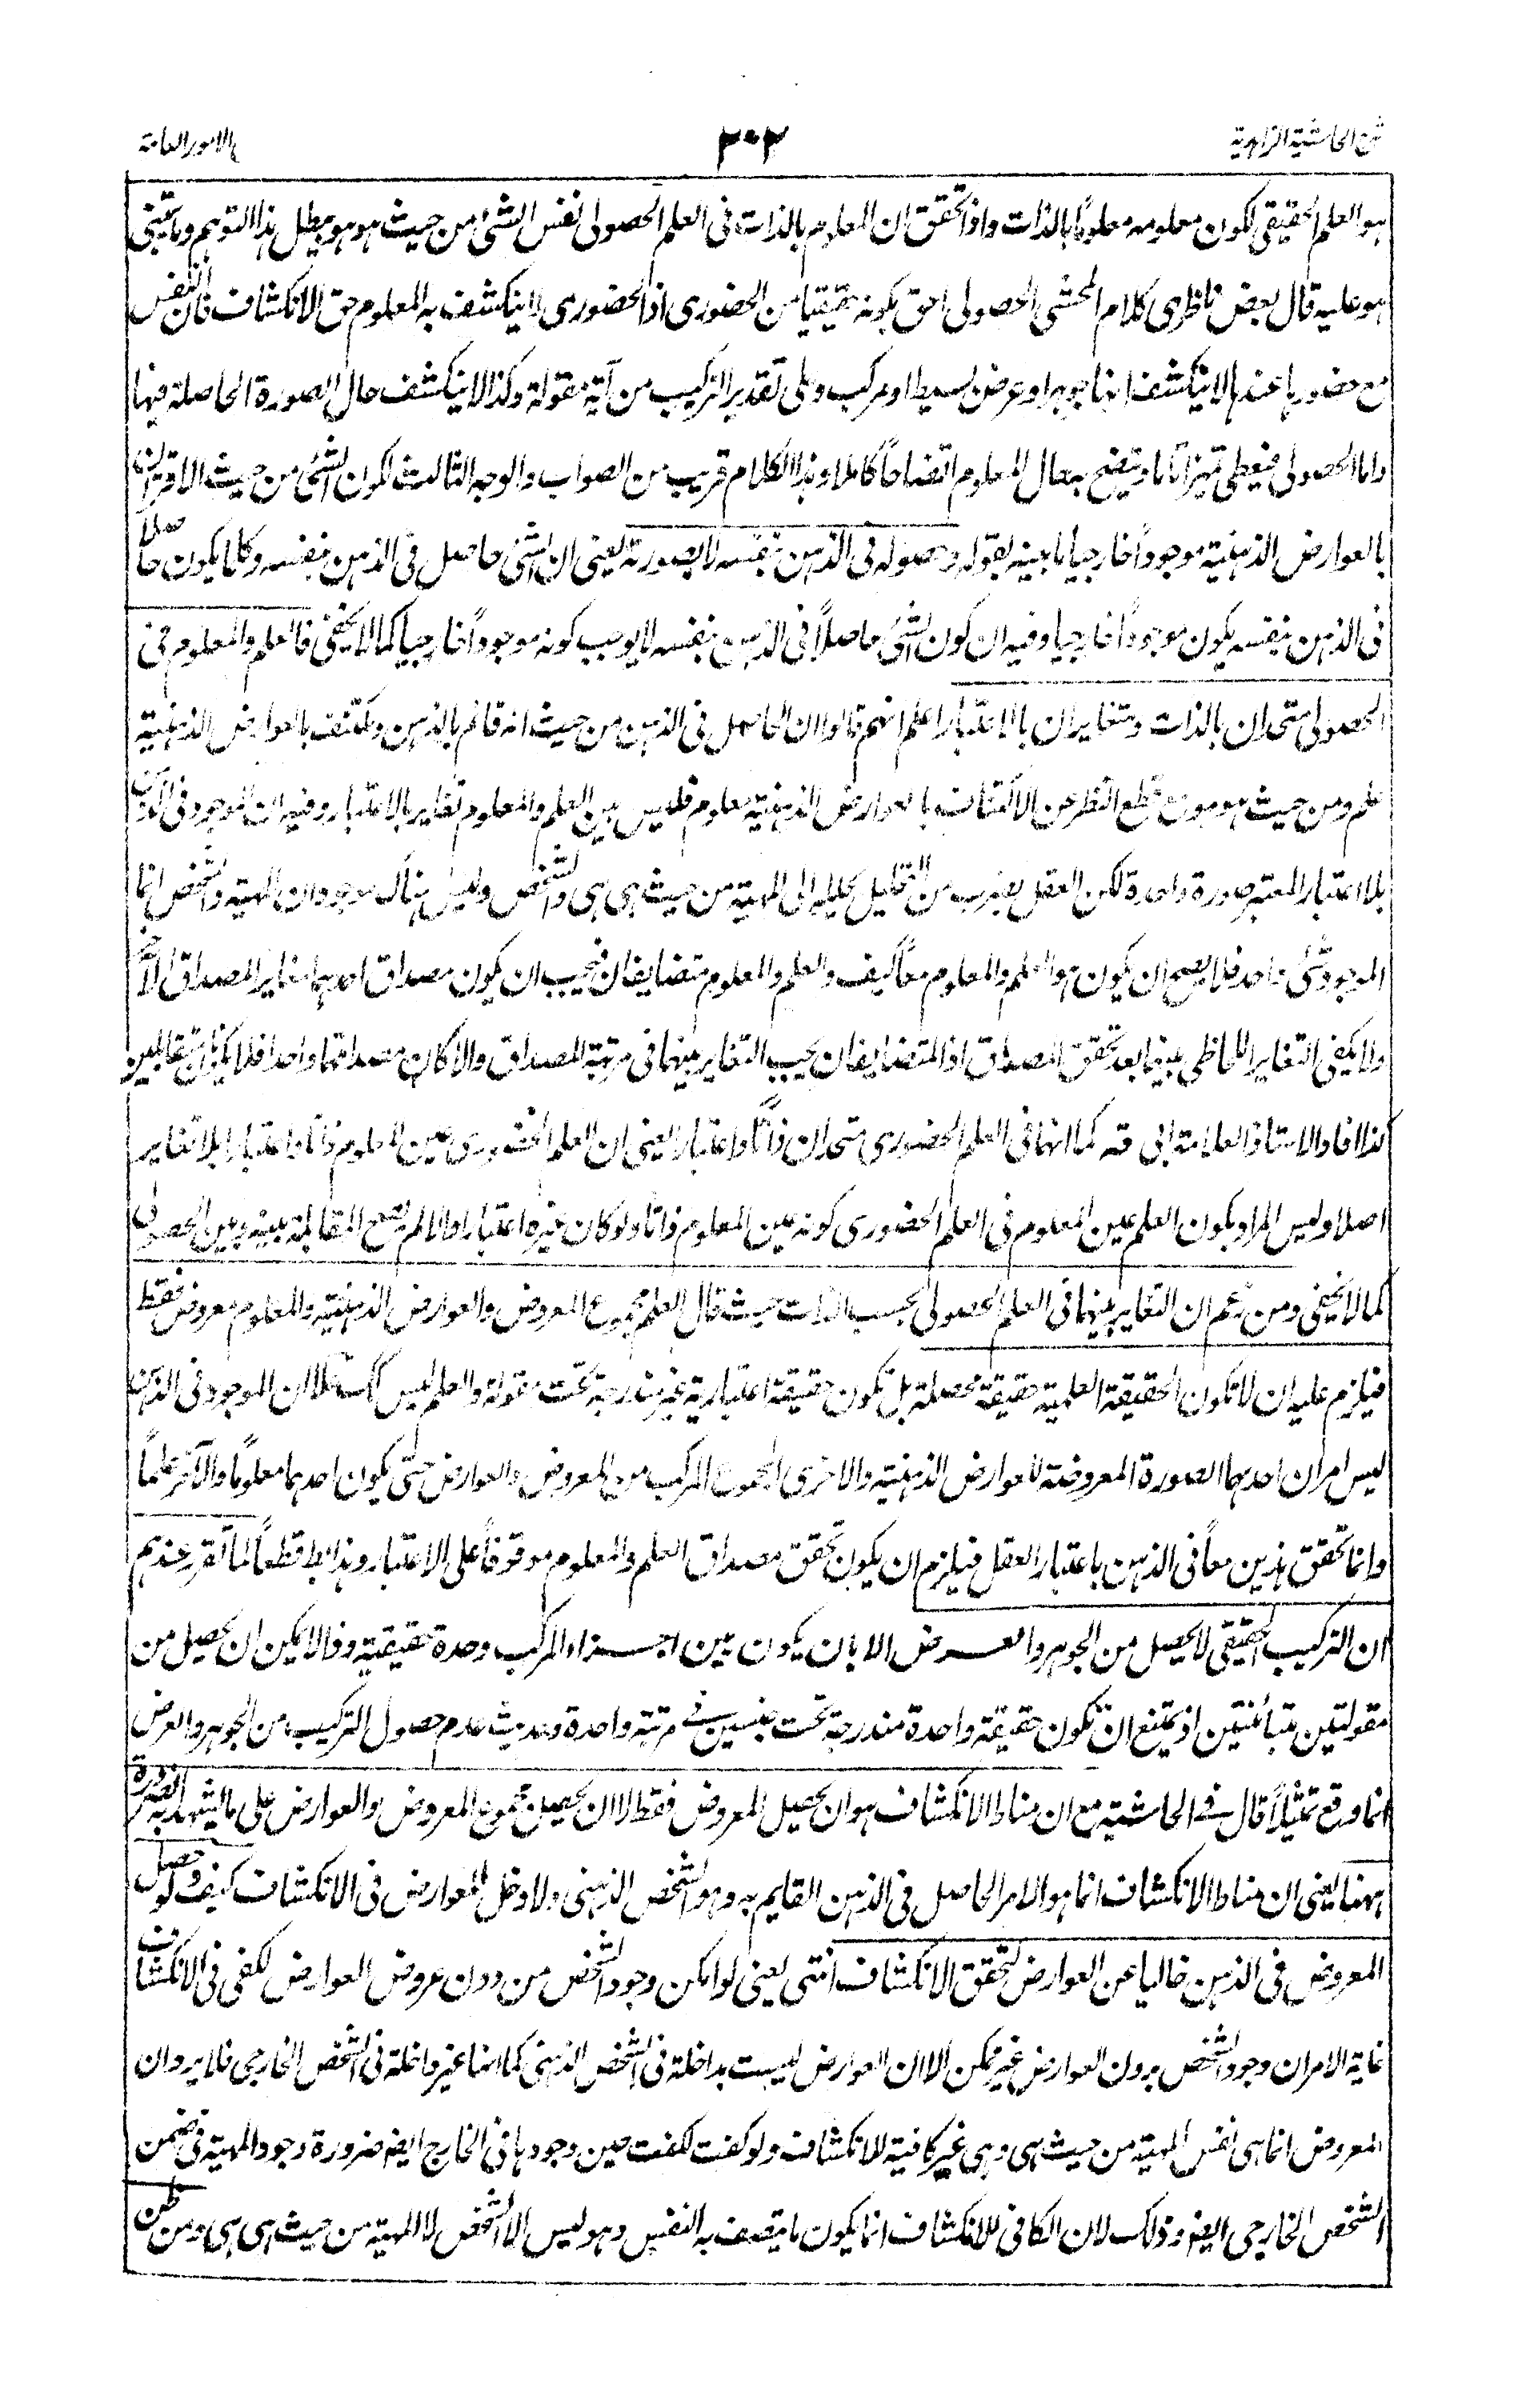 شرح الحاشية الزاهدية
٣٠٢
بالامور العامة
هو العلم الحقيقى لكون معلومه معلوماً بالذات واذ تحقق ان المعلوم بالذات فى العلم الحصولى نفس الشئ من حيث هو هو يبطل هذا التوهم وما يبتنى
هو عليه قال بعض ناظرى كلام المحشى الحصولى احق بكونه حقيقيا من الحضورى اذ الحضورى لا ينكشف به المعلوم حق الانكشاف فان النفس
مع حضورها عندها لا ينكشف انها جوهر او عرض بسيط او مركب وعلى تقدير التركيب من آية مقولة وكذا لا ينكشف حال الصورة الحاصلة فيها
واما الحصولى فيعطى تميزاً تاما ويتضح به حال المعلوم اتضاحاً كاملا وهذا الكلام قريب من الصواب والوجه الثالث لكون الشئ من حيث الاقتران
بالعوارض الذهنية موجوداً خارجيا ما بينه بقوله وحصوله فى الذهن بنفسه لا بصورته يعنى ان الشئ حاصل فى الذهن بنفسه وكلما يكون حاصلاً
فى الذهن بنفسه يكون موجوداً خارجيا وفيه ان كون الشئ حاصلاً فى الذهن بنفسه لا يوجب كونه موجوداً خارجيا كما لا يخفى فالعلم والمعلوم فى
الحصولى متحدان بالذات ومتغايران بالاعتبار اعلم انهم قالوا ان الحاصل فى الذهن من حيث انه قائم بالذهن ومكتنف بالعوارض الذهنية
علم ومن حيث هو هو مع قطع النظر عن الاكتناف بالعوارض الذهنية معلوم فليس بين العلم والمعلوم تغاير بالاعتبار وفيه ان الموجود فى الذهن
بلا اعتبار المعتبر صورة واحدة لكن العقل بضرب من التحليل يحلله الى المهية من حيث هى هى والشخص وليس هناك موجودان المهية والشخص انما
الموجود شئ واحد فلا يصح ان يكون هو العلم والمعلوم معاً كيف والعلم والمعلوم متضايفان فيجب ان يكون مصداق احدهما مغاير المصداق الآخر
ولا يكفى التغاير اللحاظى بينهما بعد تحقق المصداق اذ المتضايفان يجب التغاير بينهما فى مرتبة المصداق والا كان مصداقهما واحدا فلا يكونان متقابلين
كذا افاد الاستاذ العلامة ابى قه كما انهما فى العلم الحضورى متحدان ذاتاً واعتبارا يعنى ان العلم الحضورى عين المعلوم ذاتا واعتبارا بلا تغاير
اصلا وليس المراد بكون العلم عين المعلوم فى العلم الحضورى كونه عين المعلوم ذاتا ولو كان غيره اعتبارا والا لم يصح المقابلة بينه وبين الحصولى
كما لا يخفى ومن زعم ان التغاير بينهما فى العلم الحصولى بحسب الذات حيث قال العلم مجموع المعروض والعوارض الذهنية والمعلوم معروض فقط
فيلزم عليه ان لا تكون الحقيقة العلمية حقيقة محصلة بل تكون حقيقة اعتبارية غير مندرجة تحت مقولة والعلم ليس كذلك الان الموجود فى الذهن
ليس امران احدهما الصورة المعروضة للعوارض الذهنية والاخرى المجموع المركب من المعروض والعوارض حتى يكون احدهما معلوماً والآخر علماً
وانما تحقق هذين معاً فى الذهن باعتبار العقل فيلزم ان يكون تحقق مصداق العلم والمعلوم موقوفاً على الاعتبار وهذا بط قطعاً لما تقرر عندهم
ان التركيب الحقيقى لا يحصل من الجوهر والعرض الا بان يكون بين اجزاء المركب وحدة حقيقية وقالا يمكن ان يحصل من
مقولتين متبائنتين اذ يمتنع ان تكون حقيقة واحدة مندرجة تحت جنسين فى مرتبة واحدة وحديث عدم حصول التركيب من الجوهر والعرض
انما وقع تمثيلاً قال فى الحاشية مع ان مناط الانكشاف هو ان يحصل المعروض فقط لا ان يحصل مجموع المعروض والعوارض على ما يشهد به الضرورة
ههنا يعنى ان مناط الانكشاف انما هو الامر الحاصل فى الذهن القايم به وهو الشخص الذهنى ولا دخل للعوارض فى الانكشاف كيف ولو حصل
المعروض فى الذهن خاليا عن العوارض لتحقق الانكشاف انتهى يعنى لو امكن وجود الشخص من دون عروض العوارض لكفى فى الانكشاف
غاية الامر ان وجود الشخص بدون العوارض غير ممكن الا ان العوارض ليست بداخلة فى الشخص الذهنى كما انها غير داخلة فى الشخص الخارجى فلا يرد ان
المعروض انما هى نفس المهية من حيث هى وهى غير كافية للانكشاف ولو كفت لكفت حين وجودها فى الخارج ايضه ضرورة وجود المهية فى ضمن
الشخص الخارجى ايضه وذلك لان الكافى للانكشاف انما يكون ما يتصف به النفس وهو ليس الا الشخص لا المهية من حيث هى هى ومن ظن